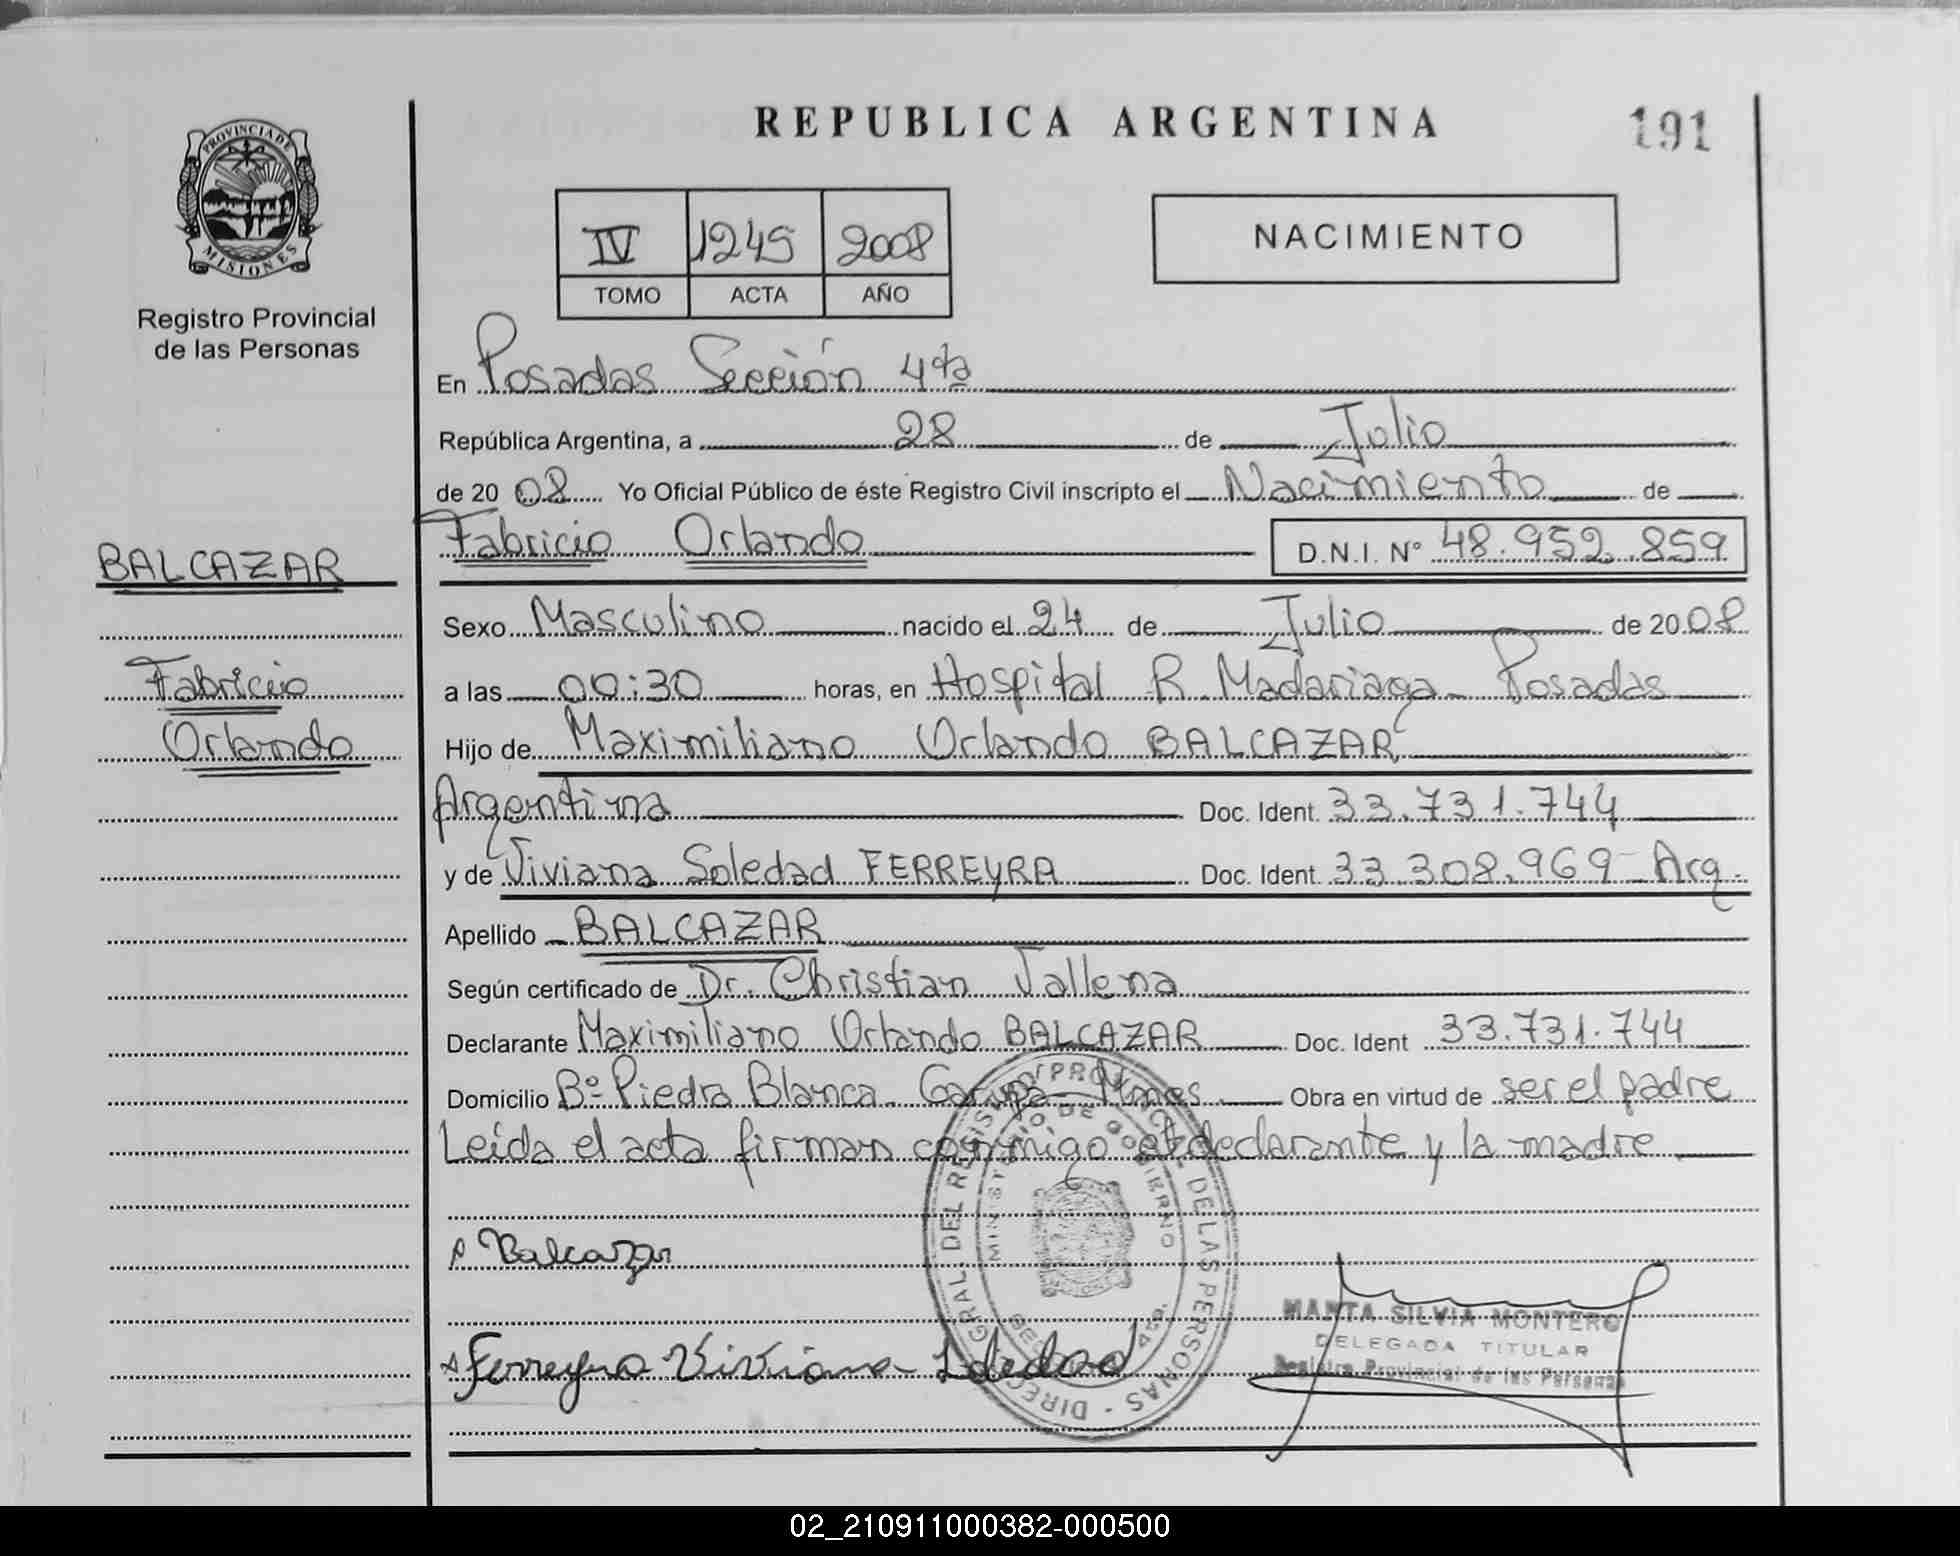 REPUBLICA ARGENTINA
191
PROVINCIA DE
MISIONES
Registro Provincial
de las Personas
IV 1245 2008
TOMO ACTA AÑO
NACIMIENTO
En Posadas Sección 4ta
República Argentina, a 28 de Julio
de 20 08 Yo Oficial Público de éste Registro Civil inscripto el Nacimiento de
Fabricio Orlando D.N.I. N° 48.952.859
BALCAZAR
Fabricio
Orlando
Sexo Masculino nacido el 24 de Julio de 20 08
a las 00:30 horas, en Hospital R. Madariaga - Posadas
Hijo de Maximiliano Orlando BALCAZAR
Argentina Doc. Ident. 33.731.744
y de Viviana Soledad FERREYRA Doc. Ident 33.308.969 - Arg.
Apellido BALCAZAR
Según certificado de Dr. Christian Vallena
Declarante Maximiliano Orlando BALCAZAR Doc. Ident 33.731.744
Domicilio B° Piedra Blanca - Garupá - Mnes Obra en virtud de ser el padre
Leída el acta firman conmigo el declarante y la madre
Balcazar
Ferreyra Viviana Soledad
DIREC. GRAL. DEL REGISTRO PROVINCIAL DE LAS PERSONAS
MINISTERIO DE GOBIERNO
MARTA SILVIA MONTERO
DELEGADA TITULAR
Registro Provincial de las Personas
02_210911000382-000500